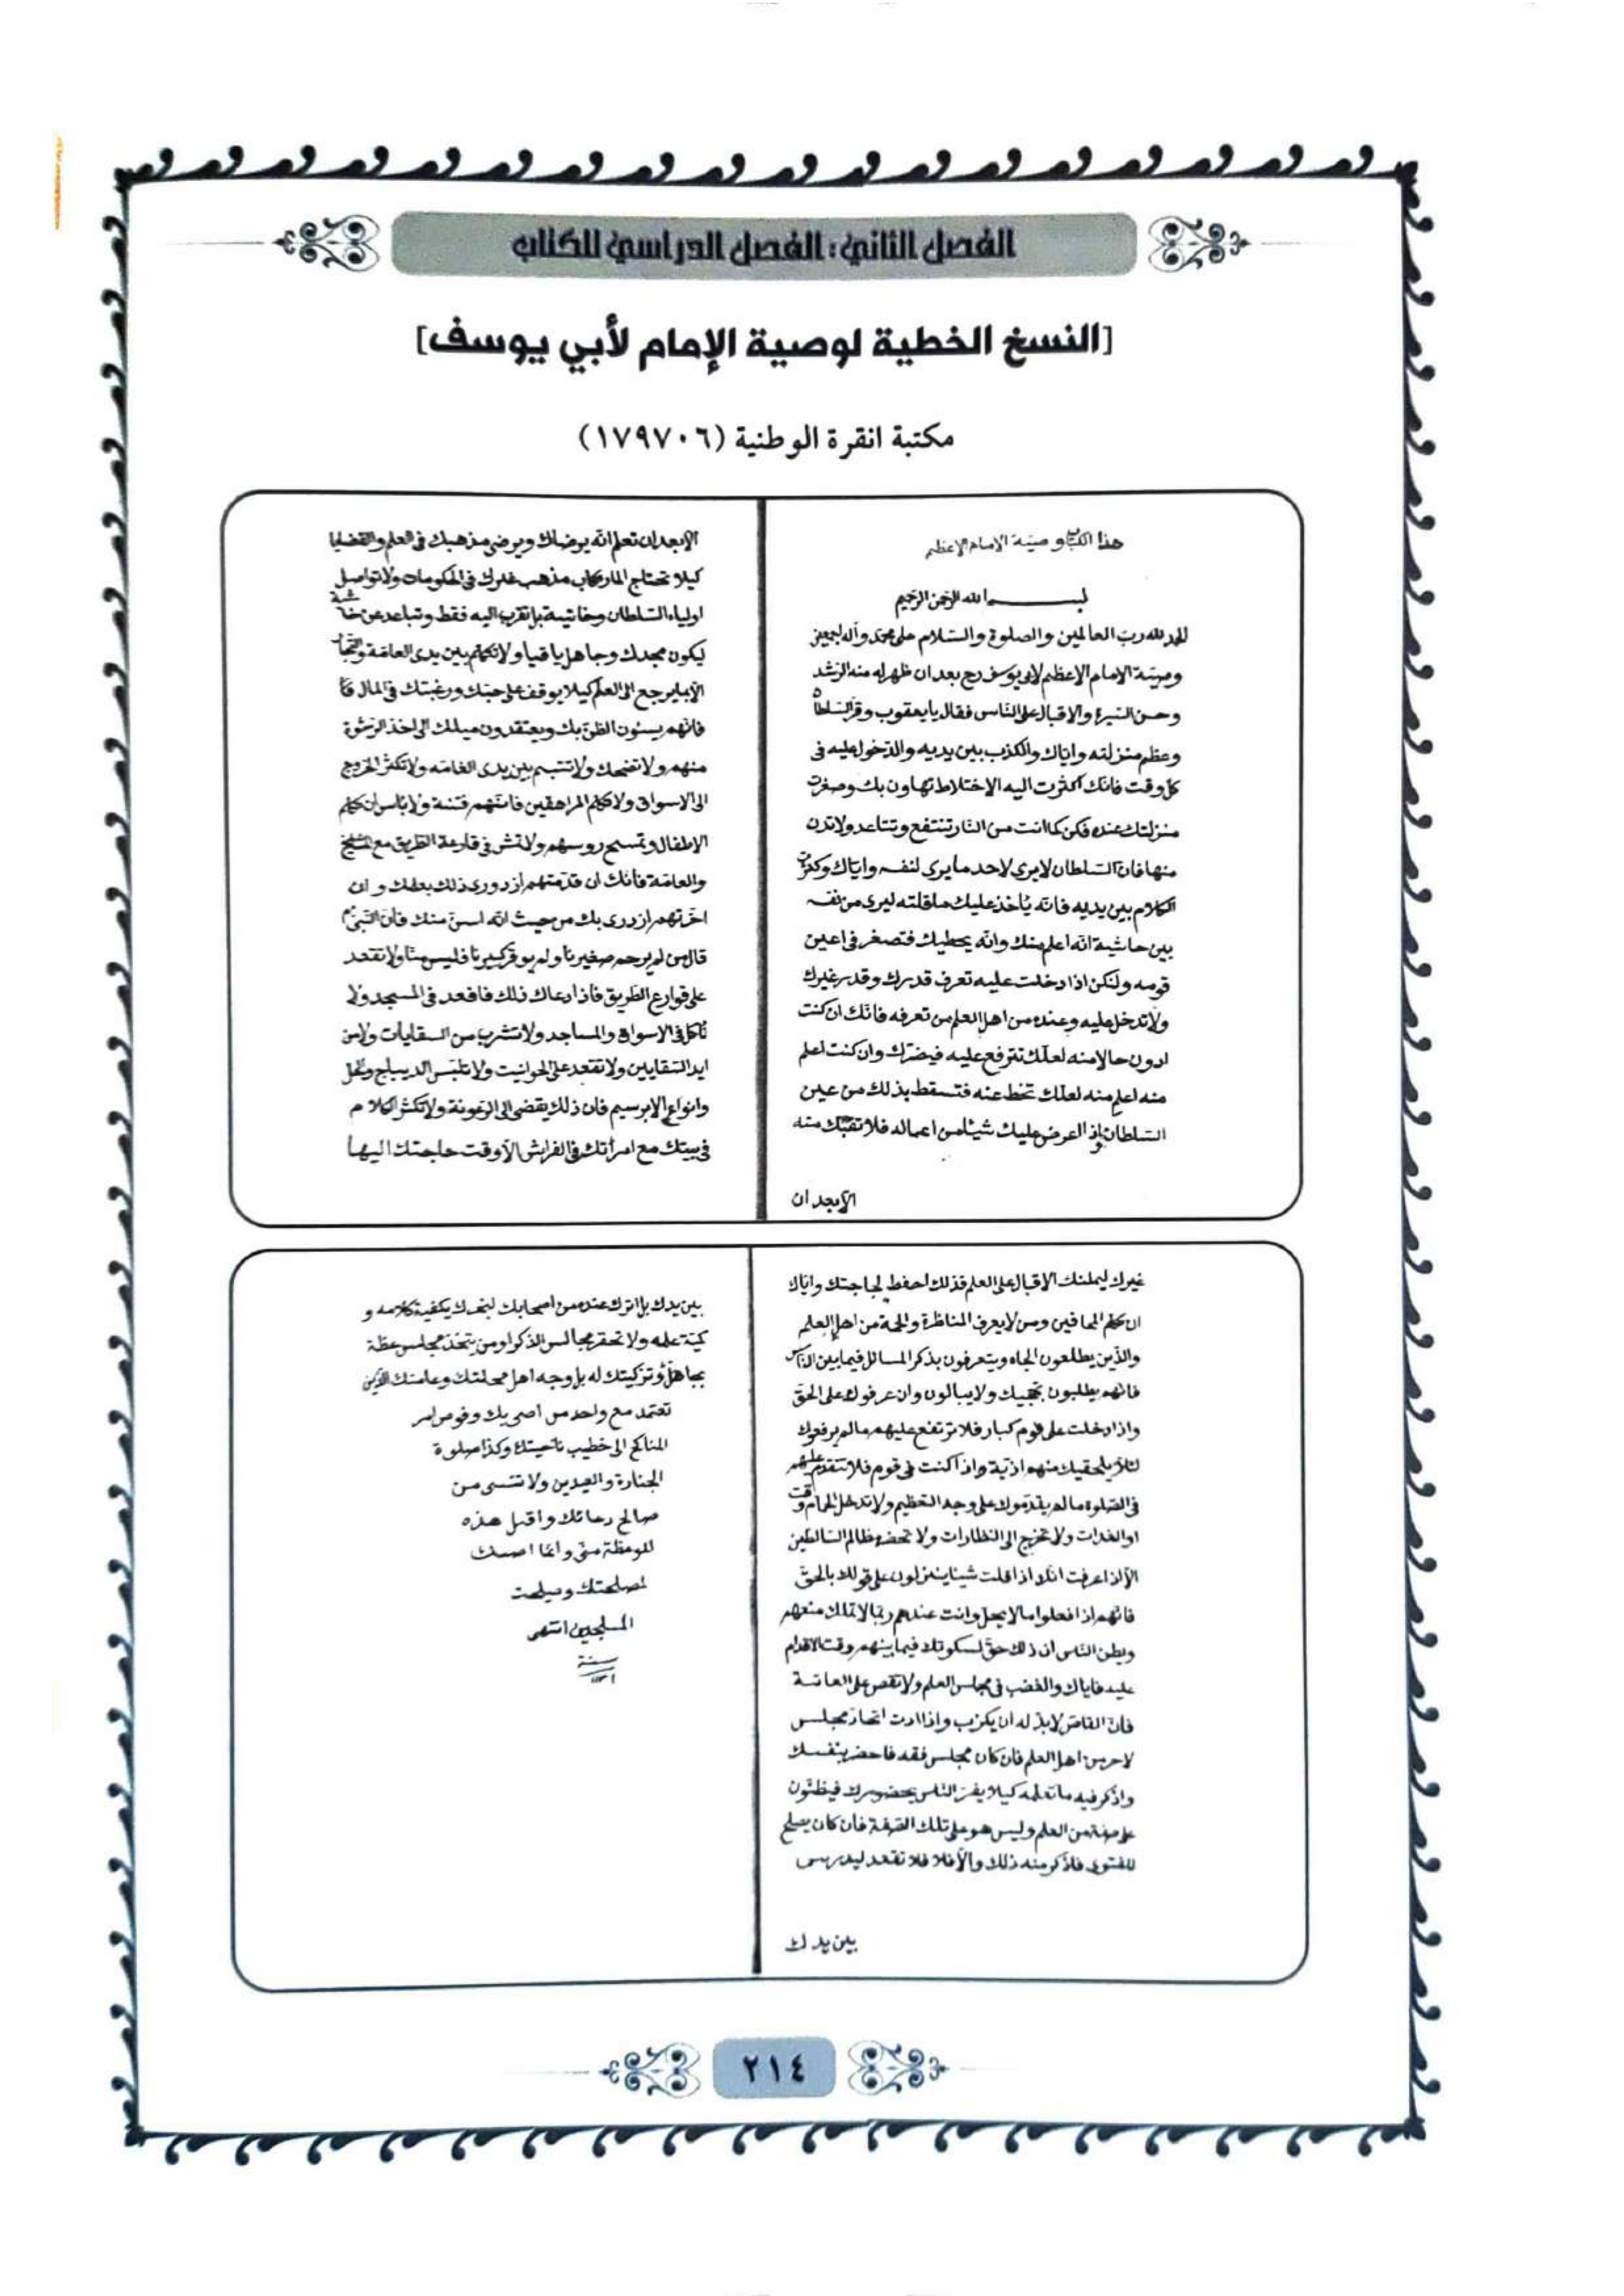 الفصل الثاني: الفصل الدراسي للكتاب
[النسخ الخطية لوصية الإمام لأبي يوسف]
مكتبة انقرة الوطنية (١٧٩٧٠٦)
هذا الكتاب وصية الامام الاعظم
بسم الله الرحمن الرحيم
الحمد لله رب العالمين والصلوة والسلام على محمد وآله اجمعين
وصية الامام الاعظم لابي يوسف رح بعد ان ظهر له منه الرشد
وحسن السيرة والاقبال على الناس فقال يا يعقوب وقر السلطان
وعظم منزلته واياك والكذب بين يديه والدخول عليه في
كل وقت فانك اكثرت اليه الاختلاط تهاون بك وصغرت
منزلتك عنده فكن كما انت من النار تنتفع وتتباعد ولا تدن
منها فان السلطان لا يرى لاحد ما يرى لنفسه واياك وكثرة
الكلام بين يديه فانه يأخذ عليك ما قلته ليرى من نفسه
بين حاشية انه اعلم منك وانه يحطيك فتصغر في اعين
قومه ولتكن اذا دخلت عليه تعرف قدرك وقدر غيرك
ولا تدخل عليه وعنده من اهل العلم من تعرفه فانك ان كنت
ادون حالا منه لعلك تترفع عليه فيضرك وان كنت اعلم
منه اعلم منه لعلك تخط عنه فتسقط بذلك من عين
السلطان واذا العرض عليك شيئا من اعماله فلا تقبل منه
الا بعد ان
الا بعد ان تعلم انه يرضاك ويرضى مذهبك في العلم والقضايا
كيلا تحتاج الى ارتكاب مذهب غيرك في الحكومات ولا تواصل
اولياء السلطان وحاشيته بل تقرب اليه فقط وتباعد عن حاشية
ليكون مجدك وجاهك باقيا ولا تكلم بين يدى العامة والتجار
الا بما يرجع الى العلم كيلا يوقف على حبك ورغبتك في المال
فانهم يسئون الظن بك ويعتقدون ميلك الى اخذ الرشوة
منهم ولا تضحك ولا تتبسم بين يدى العامه ولا تكثر الخروج
الى الاسواق ولا تكلم المراهقين فانهم فتنة ولا بأس ان تكلم
الاطفال وتمسح روسهم ولا تمش في قارعة الطريق مع المشايخ
والعامة فانك ان قدمتهم ازدورى ذلك بعلمك وان
اخرتهم ازدرى بك من حيث انه اسن منك فان النبي عم
قال من لم يرحم صغيرنا ولم يوقر كبيرنا فليس منا ولا تقعد
على قوارع الطريق فاذا دعاك ذلك فاقعد في المسجد ولا
تأكل في الاسواق والمساجد ولا تشرب من السقايات ولا من
ايد السقايين ولا تقعد على الحوانيت ولا تلبس الديباج
وانواع الابرسيم فان ذلك يقضى الى الرعونة ولا تكثر الكلام
في بيتك مع امرأتك في الفراش الا وقت حاجتك اليها
غيرك ليملنك الاقبال على العلم فذلك احفظ لحاجتك واياك
ان تكلم المجانين ومن لا يعرف المناظرة والحجة من اهل العلم
والذين يطلعون الجاه ويتعرفون بذكر المسائل فيما بين الناس
فانهم يطلبون تخجيلك ولا يبالون وان عرفوك على الحق
واذا دخلت على قوم كبار فلا ترتفع عليهم ما لم يرفعوك
لئلا يلحقيك منهم اذية واذا كنت في قوم فلا تتقدم عليهم
في الصلوة ما لم يقدموك على وجه التعظيم ولا تدخل الحمام وقت
او الغدات ولا تخرج الى النظارات ولا تحضر مظالم السلاطين
الا اذا عرفت انك اذا قلت شيئا ينزلون على قولك بالحق
فانهم اذا فعلوا ما لا يحل وانت عندهم ربما لا تملك منعهم
ويظن الناس ان ذلك حق لسكوتك فيما بينهم وقت الاقدام
عليه فاياك والغضب في مجلس العلم ولا تقص على العامة
فان القاص لا بد له ان يكزب واذا اردت اتخاذ مجلس
لاحد من اهل العلم فان كان مجلس فقه فاحضر بنفسك
واذكر فيه ما تعلمه كيلا يغتر الناس بحضورك فيظنون
على صفة من العلم وليس هو على تلك الصفة فان كان يصلح
للفتوى فاذكر منه ذلك والا فلا تقعد ليدرس
بين يدك
بين يدك بل اترك عنده من اصحابك ليخبرك بكيفية كلامه و
كمية علمه ولا تحقر مجالس الذكر او من يتخذ مجلس عظة
بجاهك وتزكيتك له بل وجه اهل محلتك وعامتك الذين
تعتمد مع واحد من اصحابك وفوض امر
المناكح الى خطيب ناحيتك وكذا صلوة
الجنازة والعيدين ولا تنسى من
صالح دعائك واقبل هذه
الموعظة منى وانما اصيك
لمصلحتك ومصلحت
المسلمين انتهى
سنة
٢١٤